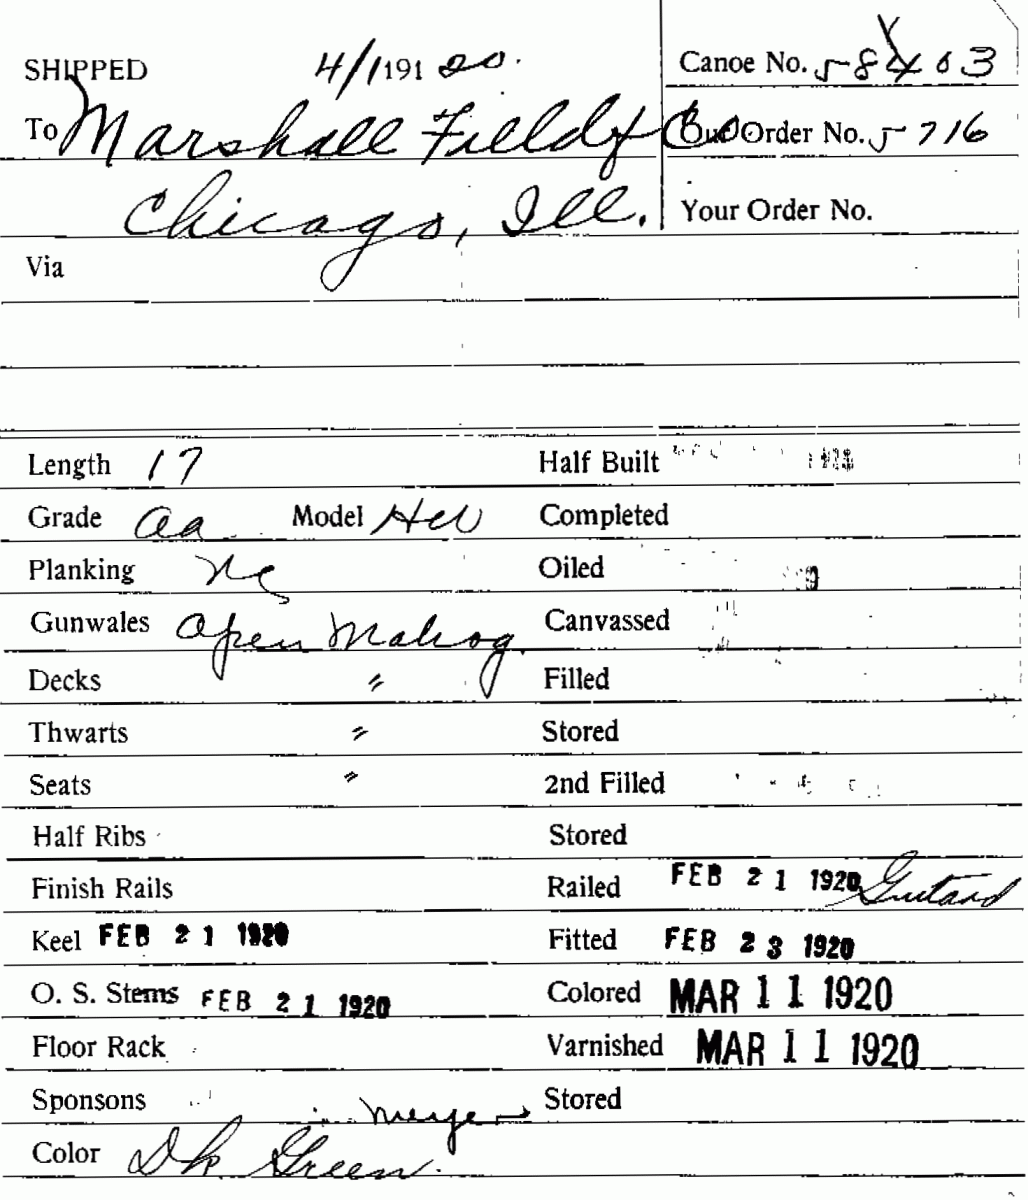 SHIPPED 4/1 191 20. Canoe No. 58403
To Marshall Field & Co Our Order No. 5716
Chicago, Ill. Your Order No.
Via
Length 17 Half Built
Grade aa Model HW Completed
Planking Oiled
Gunwales Open Mahog. Canvassed
Decks " Filled
Thwarts " Stored
Seats " 2nd Filled
Half Ribs Stored
Finish Rails Railed FEB 21 1920
Keel FEB 21 1920 Fitted FEB 23 1920
O. S. Stems FEB 21 1920 Colored MAR 11 1920
Floor Rack Varnished MAR 11 1920
Sponsons Stored
Color Dk Green.